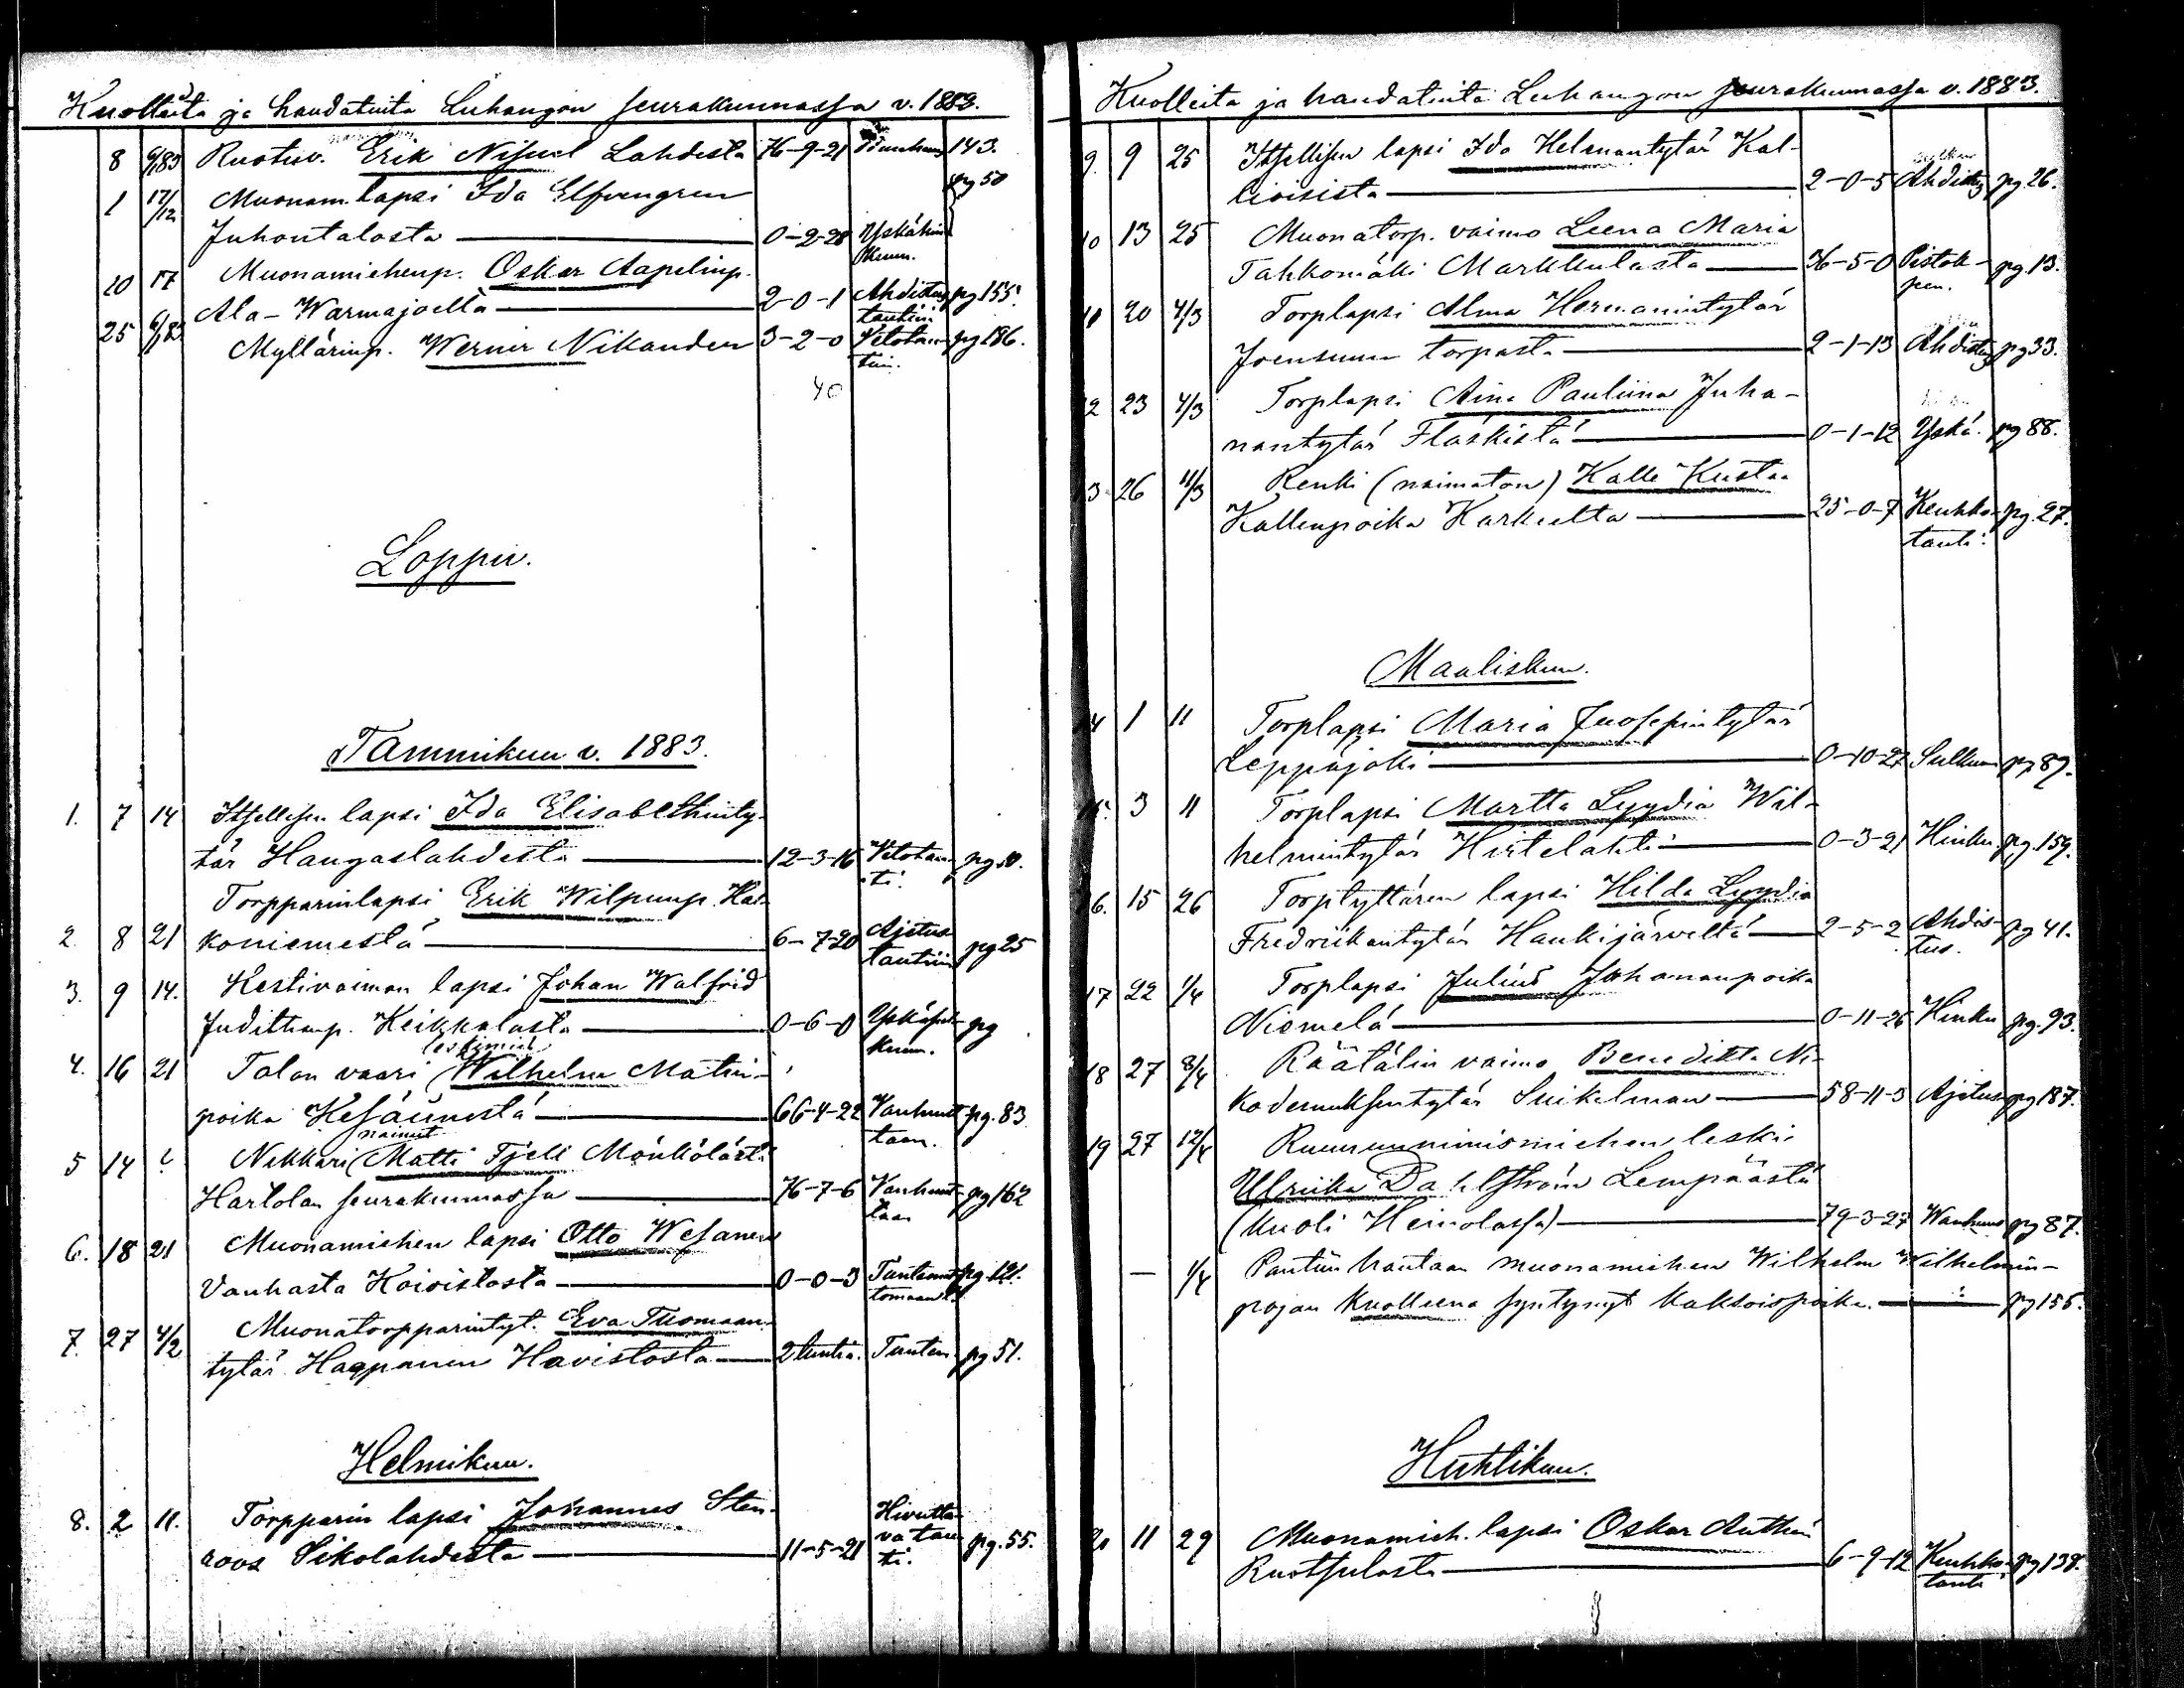 Kuolleita ja haudatuita Luhangon seurakunnassa v. 1883.
8 6/83 Ruotuv. Erik Nisuel Lahdesta 76-9-21 Vanhuus 143.
1 17/12 Muonam. lapsi Ida Elfvengren pg 50
Juhontalosta 0-2-28 Yskähin
kuum.
10 17 Muonamiehenp. Oskar Aapelinp.
Ala-Warmajoelta 2-0-1 Ahdistus pg 155.
tautiin
25 6/83 Myllärinp. Werner Nikander 3-2-0 Vetotau- pg 186.
tiin.
40
Loppu.
Tammikuu v. 1883.
1. 7 14 Itsellisen lapsi Ida Elisabethinty-
tär Hangaslahdesta 12-3-16 Vetotau- pg
ti.
Torpparinlapsi Erik Wilpunp. Ha-
2. 8 21 koniemestä 6-7-20 Ajetus pg 25
tautiin
3. 9 14. Kestivaiman lapsi Johan Walfrid
Judithanp. Keikkalasta 0-6-0 pg
kuum.
leskimies
4. 16 21 Talon vaari (Wilhelm Matin-
poika Kesäünestä 66-4-22 Vanhuut- pg. 83
taan.
nainut
5 14 Nikkari (Matti Tjeli Mönkölästä
Hartolan seurakunnassa 76-7-6 Vanhuut- pg 162
taan
6. 18 21 Muonamiehen lapsi Otto Wesanen
Vanhasta Koivistosta 0-0-3 Tuntemat- pg. 121.
tomaan t.
7. 27 4/2 Muonatorpparintyt. Eva Tuomaan-
tytär Happonen Havistosta 2 tuntia. Tuntem. pg 51.
Helmikuu.
8. 2 11. Torpparin lapsi Johannes Sten-
roos Sikolahdesta 11-5-21 Hivuttava tauti. pg. 55.
Kuolleita ja haudatuita Luhangon seurakunnassa v. 1883.
9. 9 25 Itsellisen lapsi Ida Helenantytär Kal-
lioisista 2-0-5 Ahdistus pg 26.
10 13 25 Muonatorp. vaimo Leena Maria
Tahkomäki Markkulasta 36-5-0 Pistok- pg. 13.
seen.
11 20 4/3 Torplapsi Alma Hermanintytär
Joensuun torpasta 2-1-13 Ahdistus pg 33.
12 23 4/3 Torplapsi Aina Pauliina Juha-
nantytär Fläskistä 0-1-12 Yskä. pg 88.
13. 26 11/3 Renki (naimaton) Kalle Kustaa
Kallenpoika Karkeelta 25-0-7 Keuhko- pg. 27.
tauti.
Maaliskuu.
14 1 11 Torplapsi Maria Juosepintytär
Leppäjoki 0-10-27 Sulkum. pg 89.
15. 3 11 Torplapsi Martta Lyydia Wil-
helmintytär Hietelahti 0-3-21 Hinku. pg. 159.
16. 15 26 Torptyttären lapsi Hilda Lyydia
Fredriikantytär Haukijärveltä 2-5-2 Ahdis- pg 41.
tus.
17 22 1/4 Torplapsi Julius Johananpoika
Niemelä 0-11-26 Hinku pg. 93.
18 27 8/4 Räätälin vaimo Beneditta Ni-
kodemuksentytär Suikelman 58-11-3 Ajetus pg 187.
19 27 12/4 Ruununnimismiehen leski
Ulriika Dahlström Lempäästä
(kuoli Heinolassa) 79-3-27 Wanhuus pg 87.
— 1/4 Pantiin hautaan muonamiehen Wilhelm Wilhelmin-
pojan kuolleena syntynyt kaksoispoika. pg 155.
Huhtikuu.
20 11 29 Muonamieh. lapsi Oskar Anthin
Ruotsulasta 6-9-12 Keuhko- pg 138.
tauti